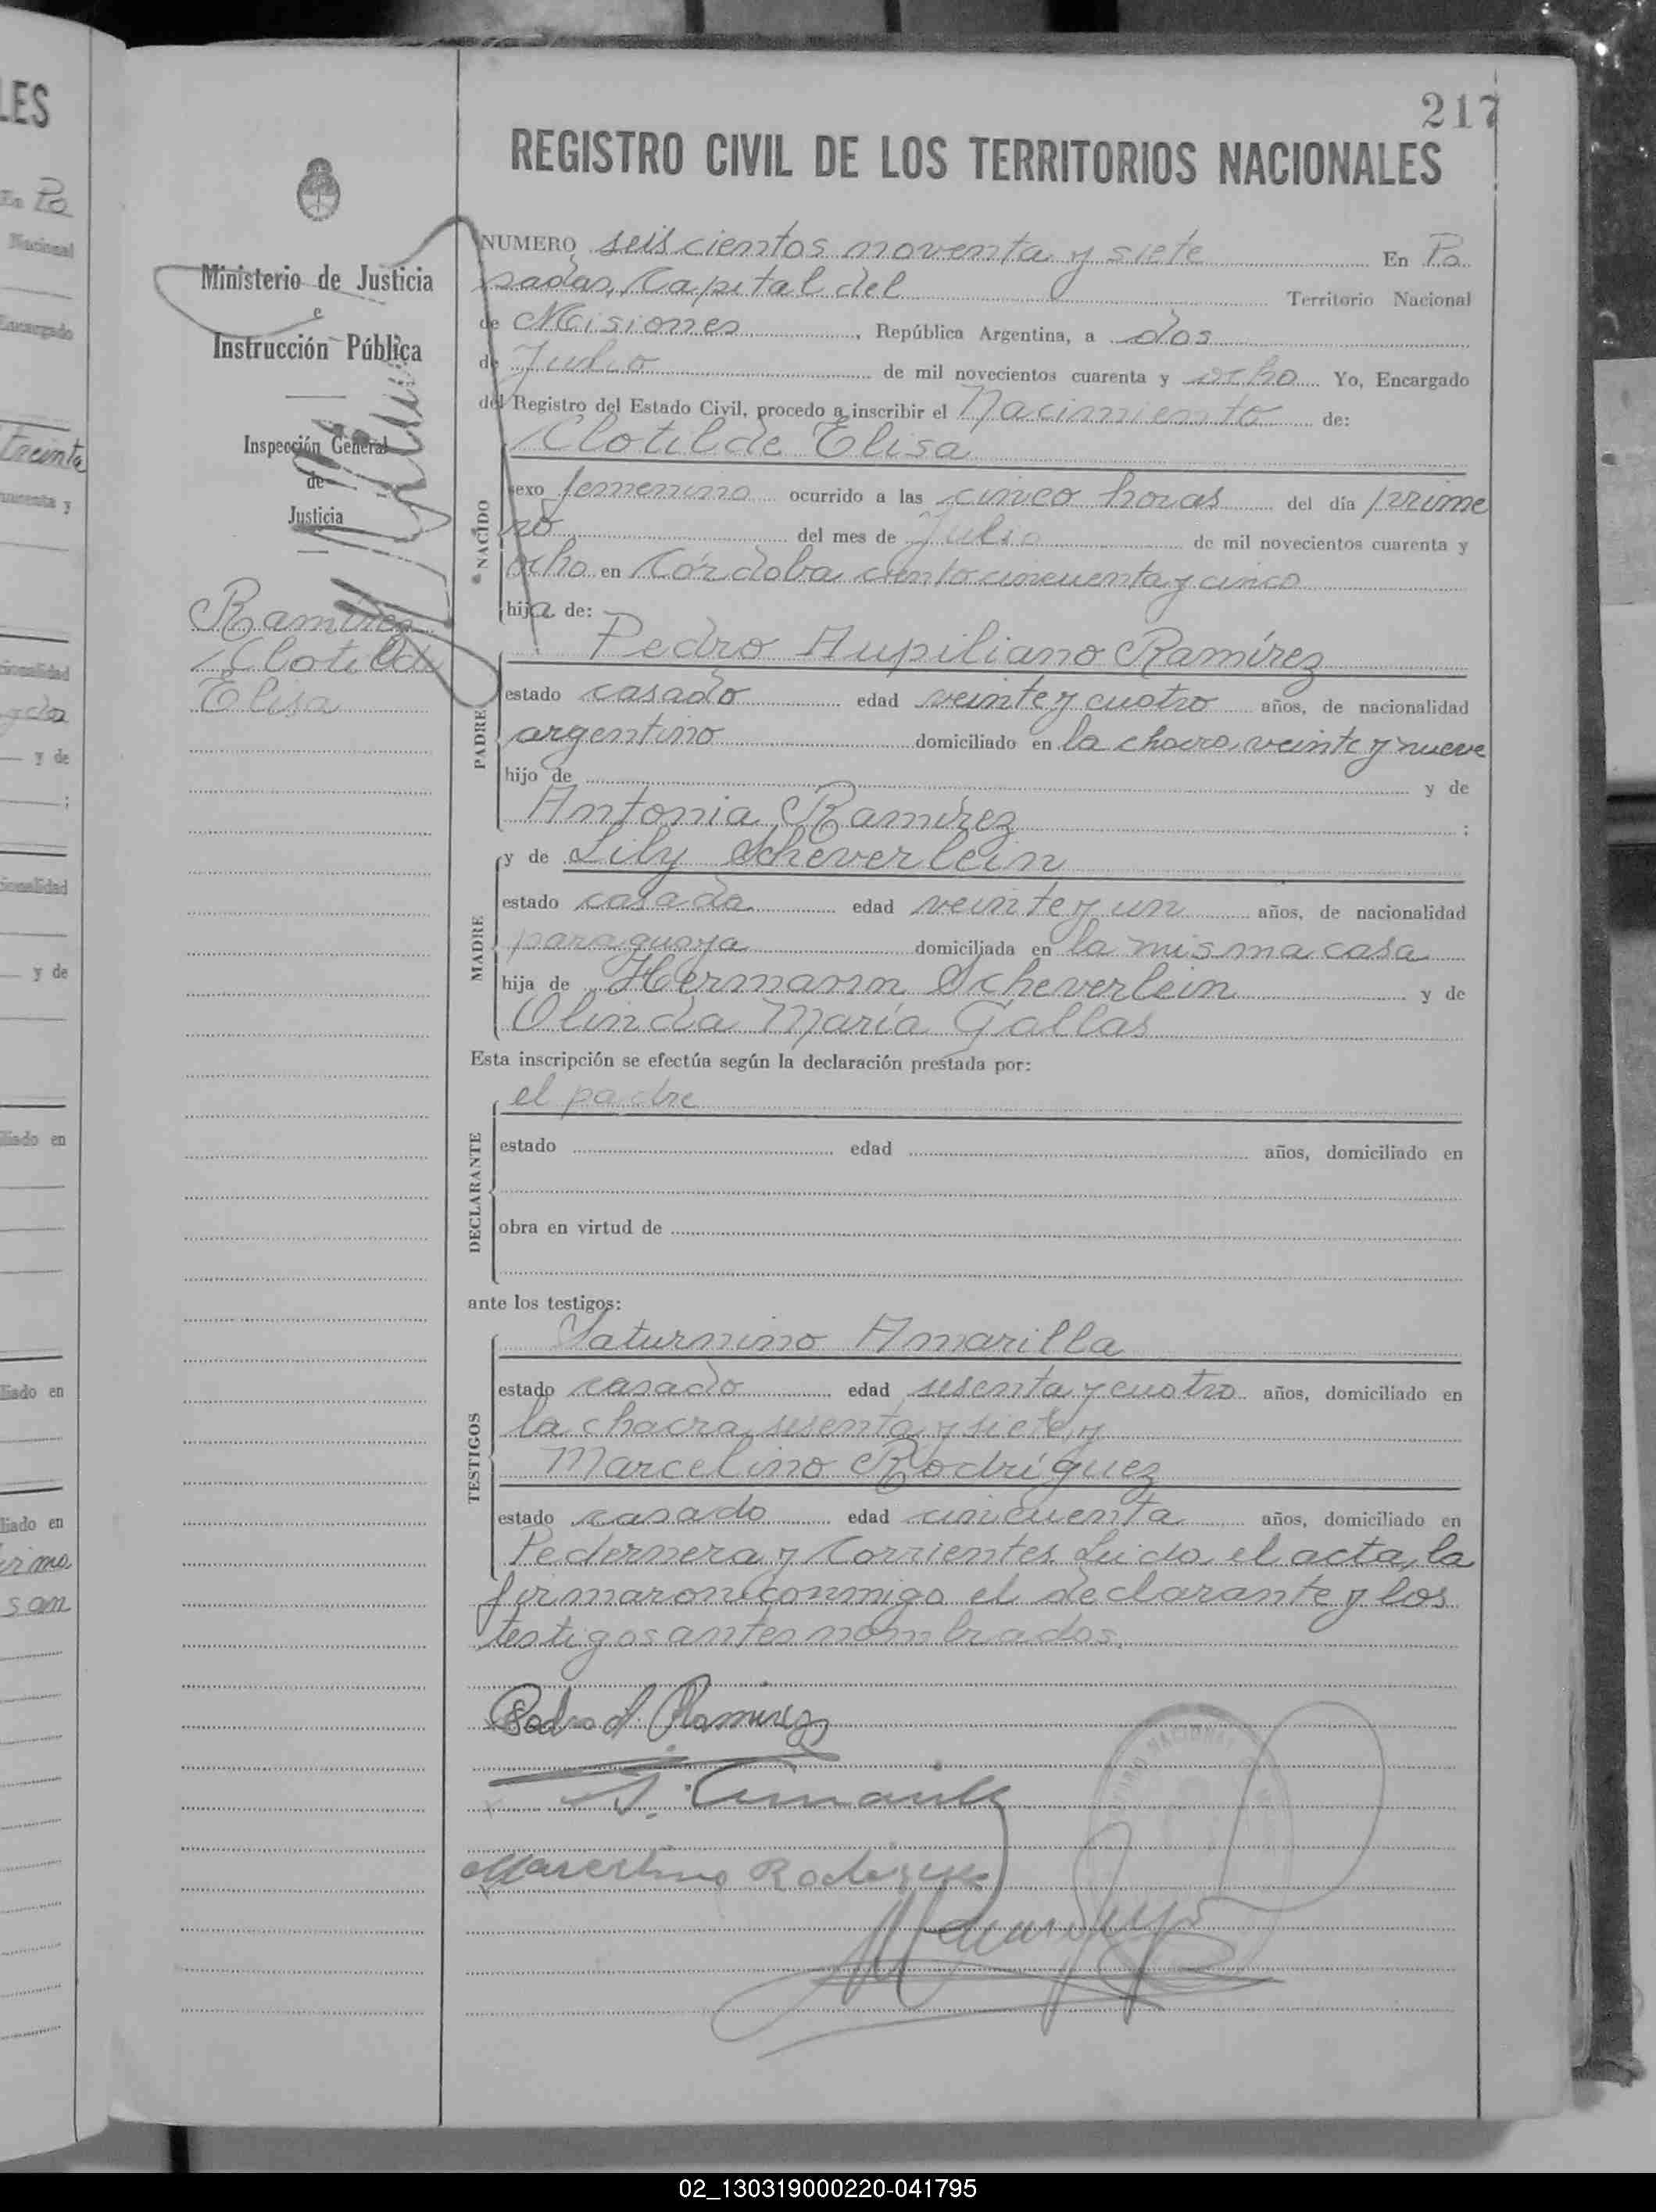 217
REGISTRO CIVIL DE LOS TERRITORIOS NACIONALES
Ministerio de Justicia
e
Instrucción Pública
Inspección General
de
Justicia
Ramírez
Clotilde
Elisa
NUMERO seiscientos noventa y siete En Po
sadas, Capital del Territorio Nacional
de Misiones, República Argentina, a dos
de Julio de mil novecientos cuarenta y ocho Yo, Encargado
del Registro del Estado Civil, procedo a inscribir el Nacimiento de:
Clotilde Elisa
NACIDO
sexo femenino ocurrido a las cinco horas del día prime
ro del mes de Julio de mil novecientos cuarenta y
ocho en Córdoba ciento cincuenta y cinco
hija de:
Pedro Aupiliano Ramírez
PADRE
estado casado edad veinte y cuatro años, de nacionalidad
argentino domiciliado en la chacra veinte y nueve
hijo de y de
Antonia Ramírez ;
y de Lily Scheverlein
MADRE
estado casada edad veinte y un años, de nacionalidad
paraguaya domiciliada en la misma casa
hija de Hermann Scheverlein y de
Olinda María Gallas
Esta inscripción se efectúa según la declaración prestada por:
el padre
DECLARANTE
estado edad años, domiciliado en
obra en virtud de
ante los testigos:
Saturnino Amarilla
TESTIGOS
estado casado edad sesenta y cuatro años, domiciliado en
la chacra sesenta y siete y
Marcelino Rodríguez
estado casado edad cincuenta años, domiciliado en
Pedernera y Corrientes. Leida el acta, la
firmaron conmigo el declarante y los
testigos antes nombrados.
Pedro A. Ramirez
S. Amarilla
Marcelino Rodriguez
02_130319000220-041795